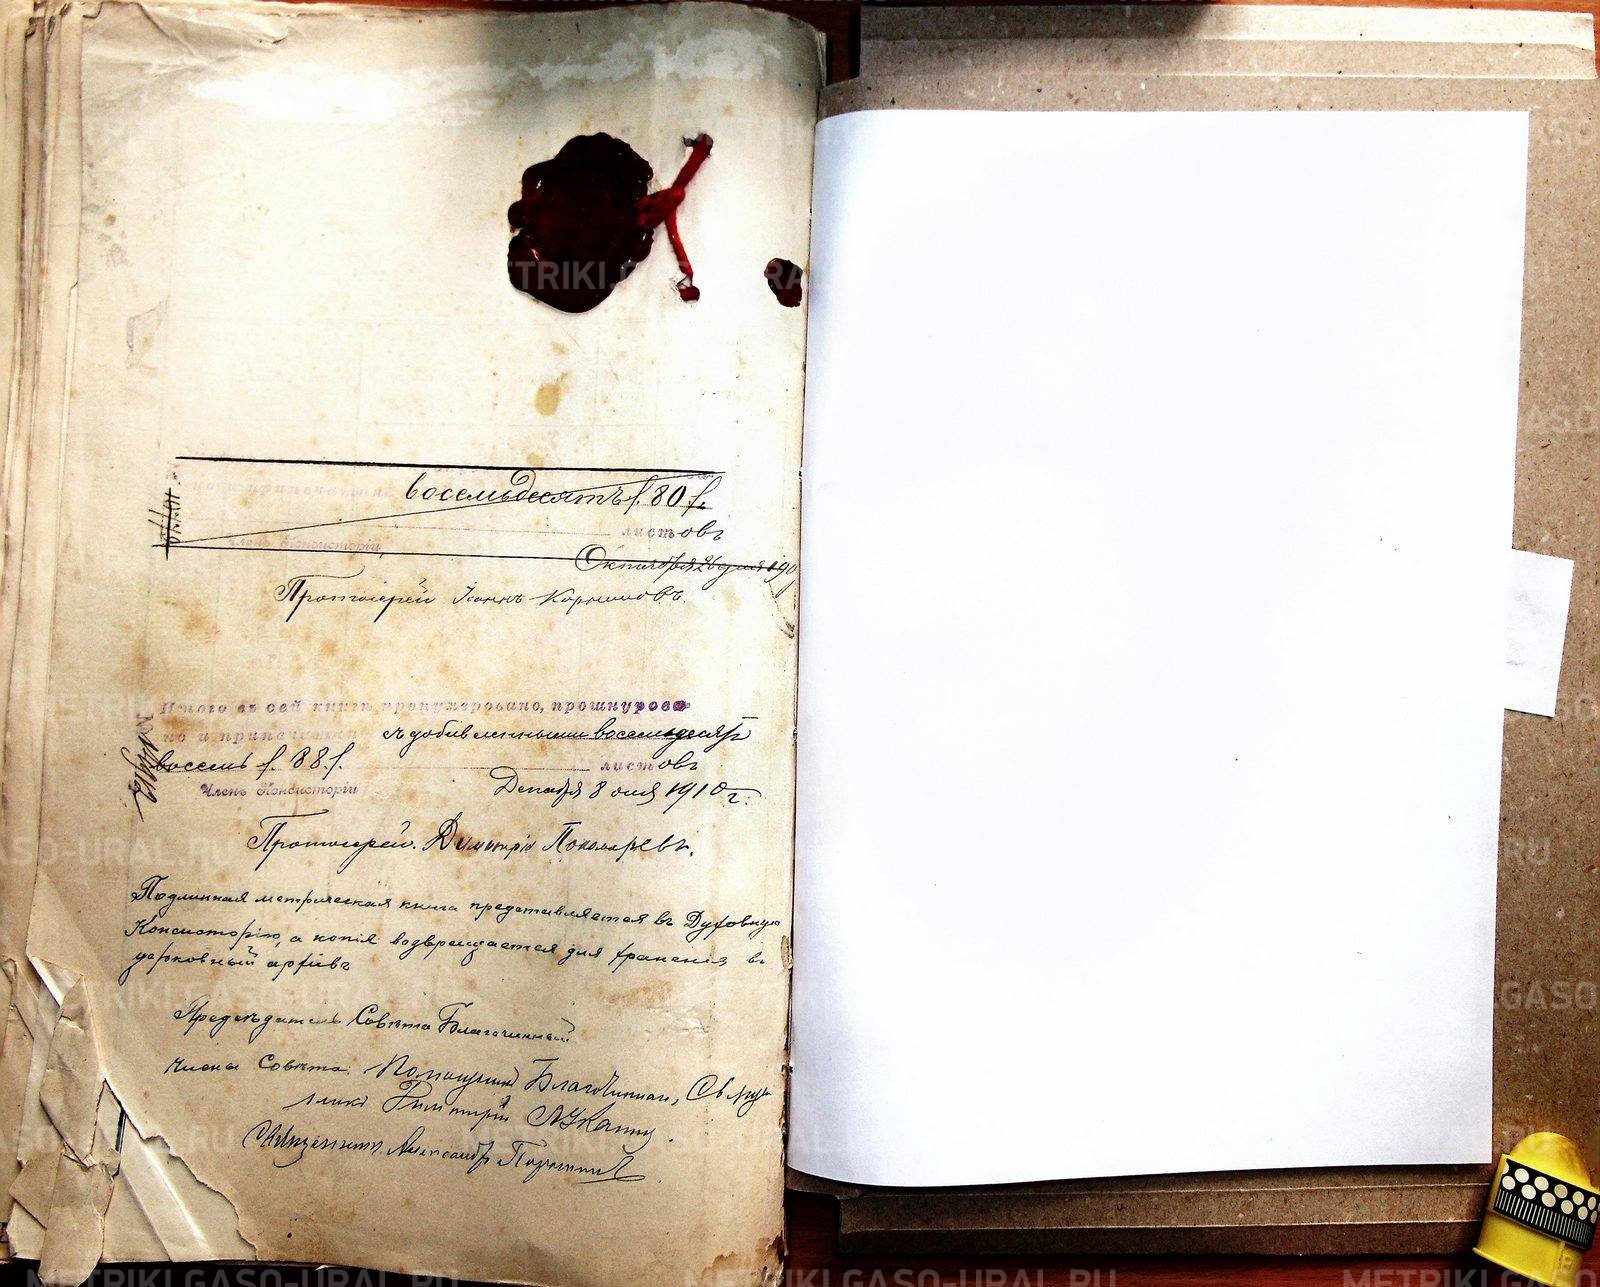 но и припечатано восемьдесятъ /. 80 /.
листовъ
Членъ Консисторіи,
Октября 190
Протоіерей Іоаннъ
Итого въ сей книгѣ пронумеровано, прошнурова
но и припечатан съ добавленными восемьдесятъ
восемь /. 88 /. листовъ
Членъ Консисторіи Декабря 8 дня 1910 г.
Протоіерей Димитрій Пономаревъ.
Подлинная метрическая книга представляется въ Духовную
Консисторію, а копія возвращается для храненія въ
церковный архивъ
Предсѣдатель Совѣта Благочинный
Члены Совѣта: Помощникъ Благочиннаго, Свящ
Димитрій
Священникъ Александръ
METRIKI.GASO-URAL.RU